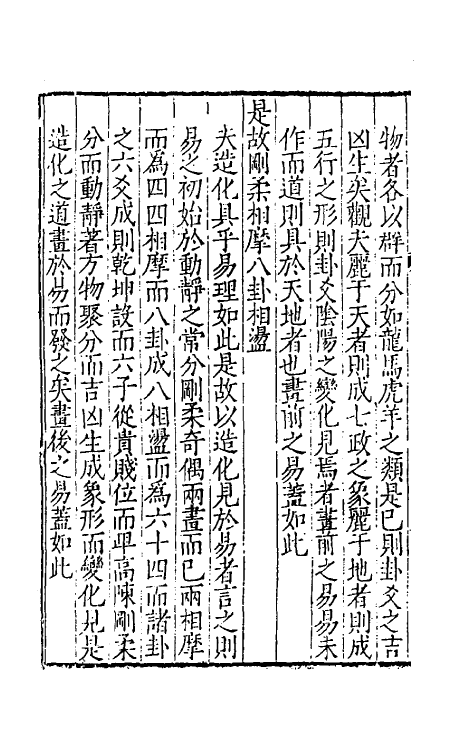 物者各以群而分如龍馬虎羊之類是已則卦爻之吉
凶生矣觀夫麗于天者則成七政之象麗于地者則成
五行之形則卦爻陰陽之變化見焉者畫前之易易未
作而道則具於天地者也畫前之易蓋如此
是故剛柔相摩八卦相盪
夫造化具乎易理如此是故以造化見於易者言之則
易之初始於動靜之常分剛柔奇偶兩畫而已兩相摩
而為四四相摩而八卦成八相盪而為六十四而諸卦
之六爻成則乾坤設而六子從貴賤位而卑高陳剛柔
分而動靜著方物聚分而吉凶生成象形而變化見是
造化之道畫於易而發之矣畫後之易蓋如此